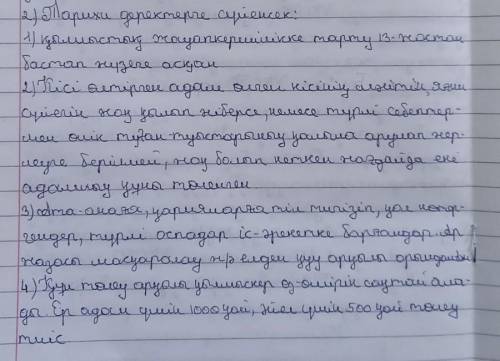 2) Тарихи деректерге сүйенсек:
1) Қылмыстық жауапкершілікке тарту 13-жастан
бастап жүзеге асқан
2) Кісі өлтірген адам өлген кісінің мәйітін, яғни
сүйегін жоқ қылып жіберсе, немесе түрлі себептер-
мен өлік туған-туыстарының қолына арулап жер-
леуге берілмей, жоқ болып кеткен жағдайда екі
адамның құны төленген.
3) Ата-анаға, қарияларға тіл тигізіп, қол көтер-
гендер, түрлі оспадар іс-әрекетке барғандар. Ар
жазасы масқаралау н/е елден қуу арқылы орындалды
4) Құн төлеу арқылы қылмыскер өз-өмірін сақтай ала-
ды. Ер адам үшін 1000 қой, әйел үшін 500 қой төлеу
тиіс